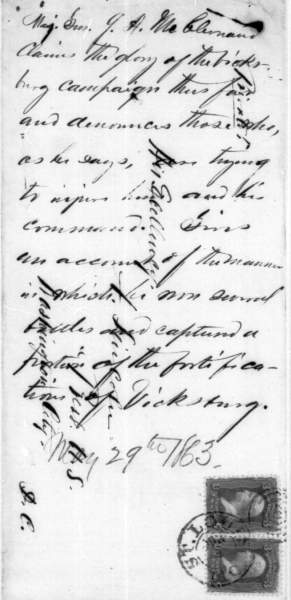 Maj. Gen. J. A. McClernand
claims the glory of the Vicks-
burg campaign thus far
and denounces those who,
as he says, are trying
to injure him and his
command. Gives
an account of the manner
in which he won several
battles and captured a
portion of the fortifica-
tions of Vicksburg.
May 29th 1863.
His Excellency
A. Lincoln
President U.S.
Washington City
D. C.
ST. LOU